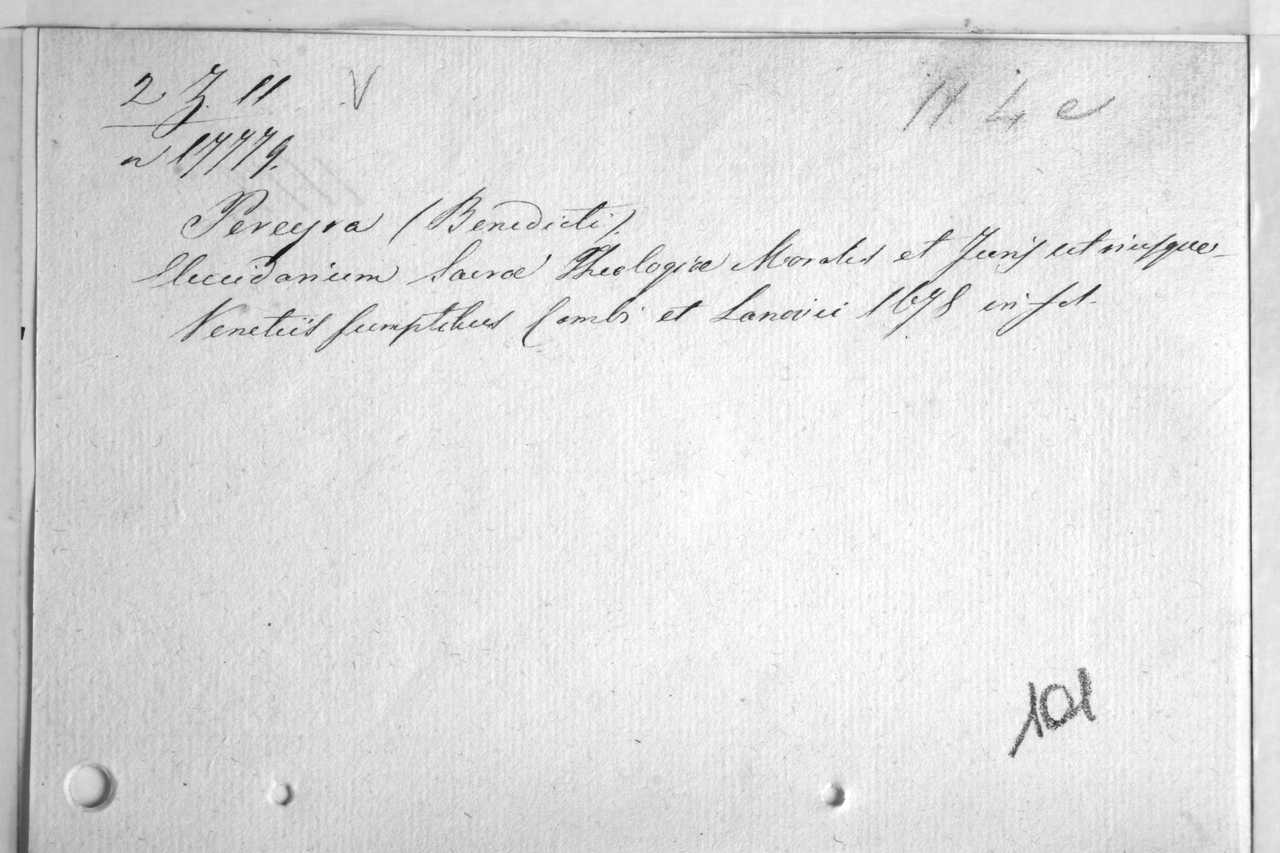 2 Z. 11 V
n 17779.
11 4 e
Pereyra (Benedicti).
Elucidarium Sacræ Theologiæ Moralis et Juris utriusque
Venetiis sumptibus Combi et Lanovii 1678 in fol.
101